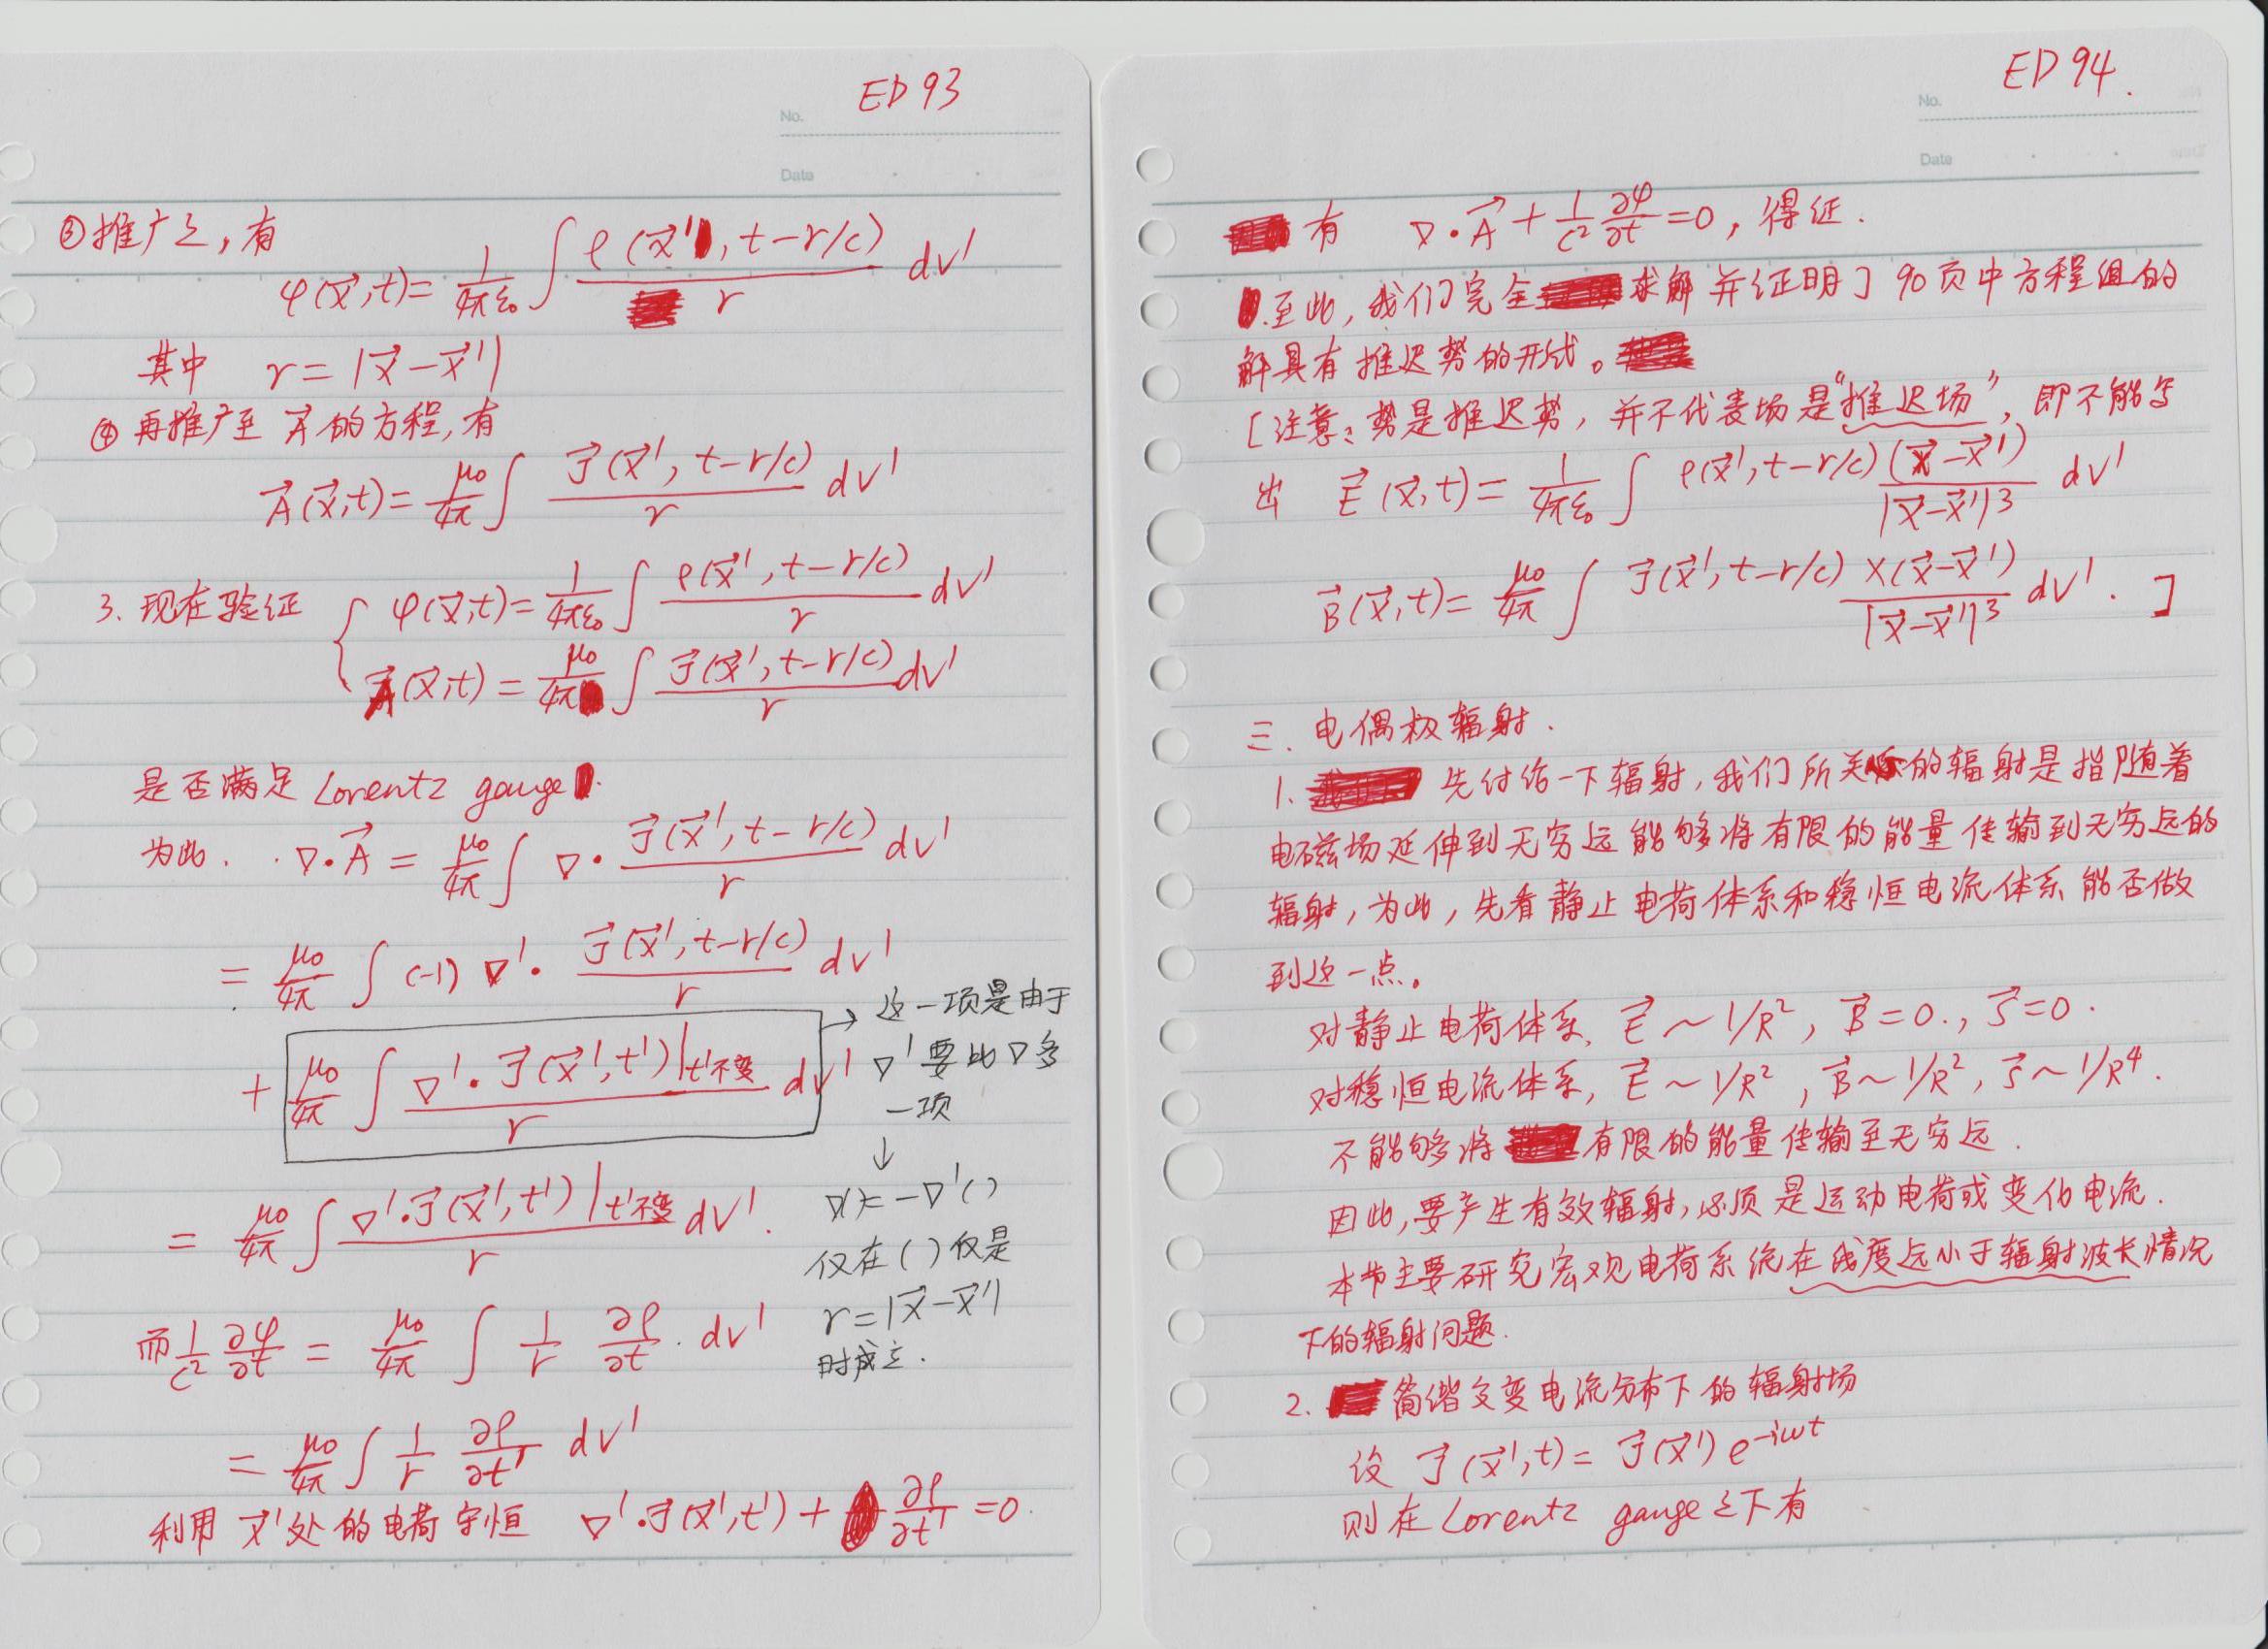 ED 93
No.
Date
③推广之,有
φ(x⃗,t)= 1/4πε₀ ∫ ρ(x⃗', t-r/c)/r dV'
其中 r=|x⃗-x⃗'|
④再推广至 A⃗的方程,有
A⃗(x⃗,t)= μ₀/4π ∫ J⃗(x⃗', t-r/c)/r dV'
3. 现在验证 { φ(x⃗,t)= 1/4πε₀ ∫ ρ(x⃗', t-r/c)/r dV'
A⃗(x⃗,t) = μ₀/4π ∫ J⃗(x⃗', t-r/c)/r dV'
是否满足 Lorentz gauge.
为此. ∇·A⃗ = μ₀/4π ∫ ∇· J⃗(x⃗', t-r/c)/r dV'
= μ₀/4π ∫ (-1) ∇'· J⃗(x⃗', t-r/c)/r dV'
+ μ₀/4π ∫ ∇'·J⃗(x⃗',t')|t'不变/r dV'
→ 这一项是由于
∇'要比∇多
一项
↓
∇()=-∇'()
仅在()仅是
r=|x⃗-x⃗'|
时成立.
= μ₀/4π ∫ ∇'·J⃗(x⃗',t')|t'不变/r dV'.
而 1/c² ∂φ/∂t = μ₀/4π ∫ 1/r ∂ρ/∂t · dV'
= μ₀/4π ∫ 1/r ∂ρ/∂t' dV'
利用 x⃗'处的电荷守恒 ∇'·J⃗(x⃗',t') + ∂ρ/∂t' =0.
ED 94.
No.
Date
有 ∇·A⃗ + 1/c² ∂φ/∂t =0, 得证.
至此,我们完全求解并证明了90页中方程组的
解具有推迟势的形式。
[注意:势是推迟势,并不代表场是“推迟场”,即不能写
出 E⃗(x⃗,t)= 1/4πε₀ ∫ ρ(x⃗', t-r/c)(x⃗-x⃗')/|x⃗-x⃗'|³ dV'
B⃗(x⃗,t)= μ₀/4π ∫ J⃗(x⃗', t-r/c)×(x⃗-x⃗')/|x⃗-x⃗'|³ dV'. ]
三. 电偶极辐射.
1. 先讨论一下辐射,我们所关心的辐射是指随着
电磁场延伸到无穷远能够将有限的能量传输到无穷远的
辐射,为此,先看静止电荷体系和稳恒电流体系能否做
到这一点。
对静止电荷体系, E⃗~1/R², B⃗=0., S⃗=0.
对稳恒电流体系, E⃗~1/R², B⃗~1/R², S⃗~1/R⁴.
不能够将有限的能量传输至无穷远.
因此,要产生有效辐射,必须是运动电荷或变化电流.
本节主要研究宏观电荷系统在线度远小于辐射波长情况
下的辐射问题.
2. 简谐交变电流分布下的辐射场
设 J⃗(x⃗',t)= J⃗(x⃗')e^{-iωt}
则在Lorentz gauge之下有